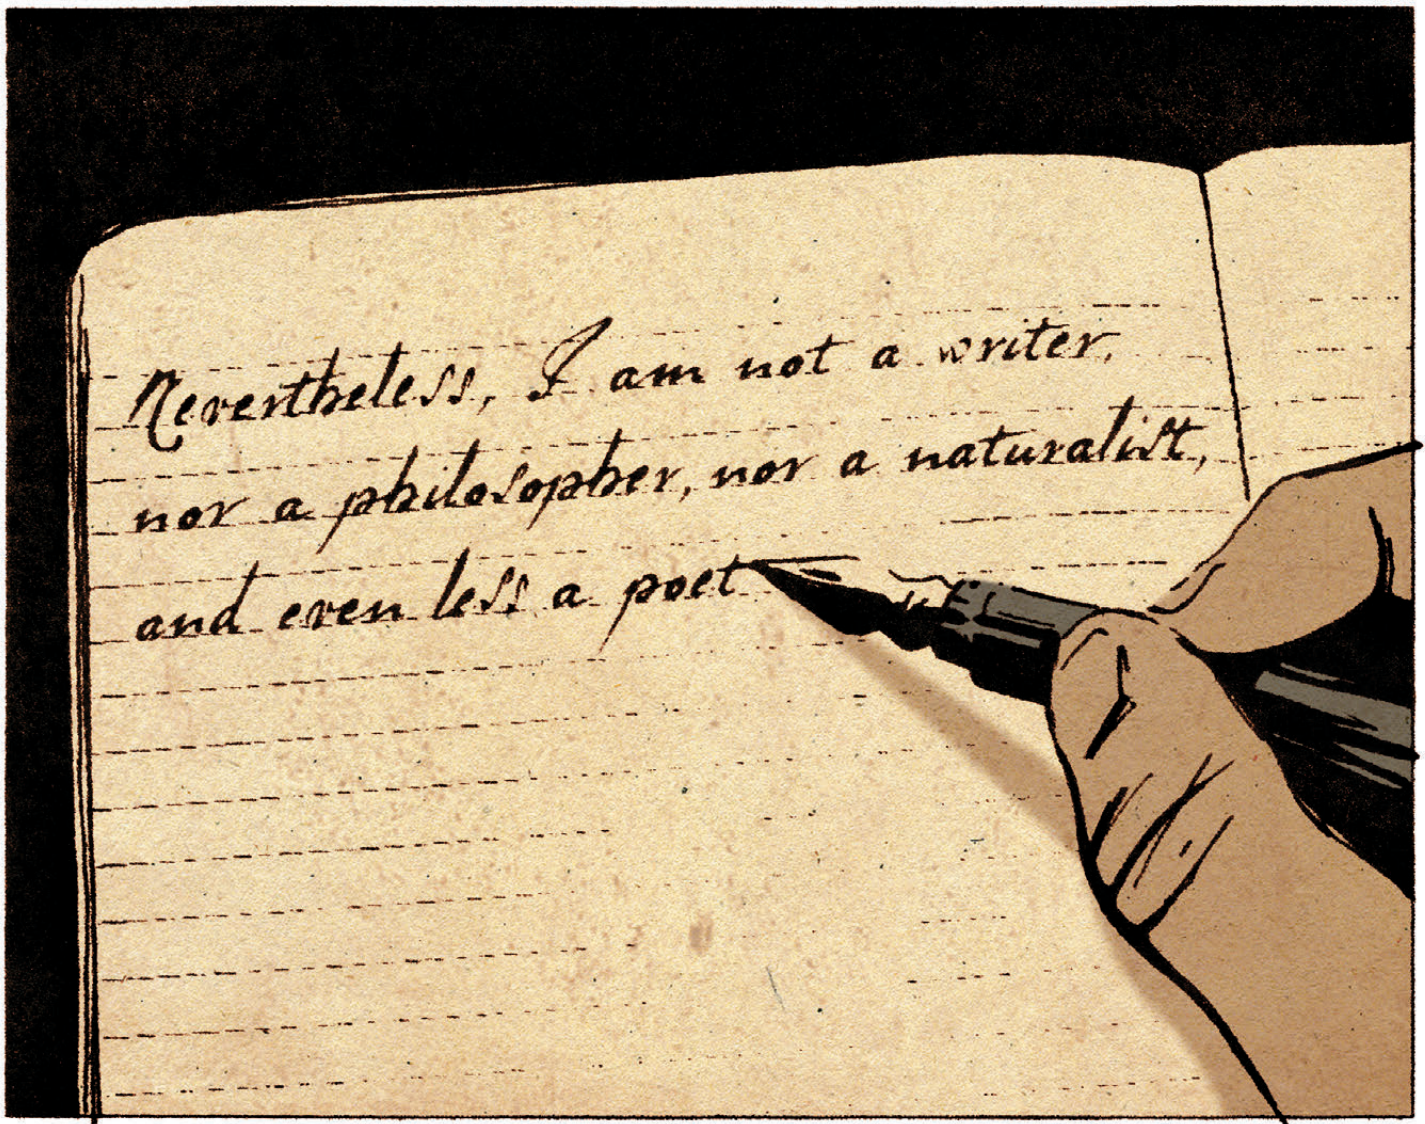 Nevertheless, I am not a writer,
nor a philosopher, nor a naturalist,
and even less a poet